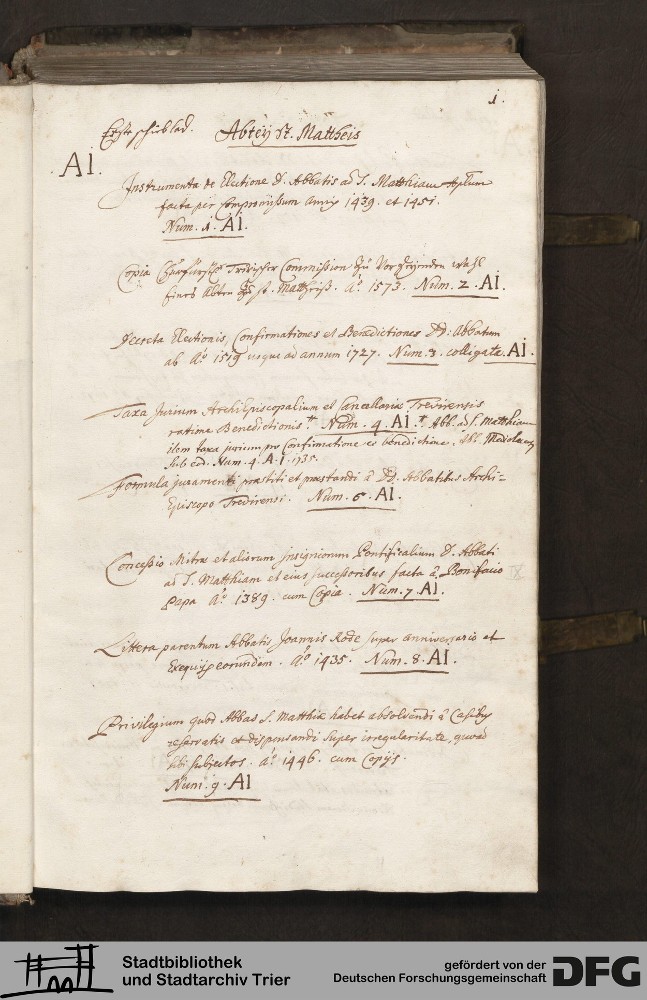 1.
Erste schublad. Abtey St. Mattheis
AI.
Instrumenta de Electione D. Abbatis ad S. Matthiam Aplum
facta per Compromissum annis 1439. et 1451.
Num. 1. AI.
Copia Churfürstl. Trierischer Commission zu Wahl
eines Abten zu st. Mattheiß. Aõ 1573. Num. 2. AI.
Decreta Electionis, Confirmationes et Benedictiones DD: Abbatum
ab Aõ 1519 usque ad annum 1727. Num. 3. colligata. AI.
Taxa Jurium ArchiEpiscopalium et Cancellariæ Trevirensis
ratione Benedictionis. Num. 4. AI. Abb. ad S. Matthiam
item taxa jurium pro Confirmatione et benedictione. Abb.
sub eod. Num. 4. A.I. 1735.
Formula juramenti præstiti et præstandi à DD. Abbatibus Archi-
Episcopo Trevirensi. Num. 6. AI.
Concessio Mitræ et aliorum Insigniorum Pontificalium D. Abbati
ad S. Matthiam et eius successoribus facta à Bonifacio
Papa Aõ 1389. cum Copia. Num. 7. AI.
Littera parentum Abbatis Joannis Rode super anniversario et
Exequijs eorundem. Aõ 1435. Num. 8. AI.
Privilegium quod Abbas S. Matthiæ habet absolvendi à Casibus
reservatis et dispensandi super irregularitate, quoad
sibi subjectos. aõ 1446. cum Copijs.
Num. 9. AI
Stadtbibliothek
und Stadtarchiv Trier
gefördert von der
Deutschen Forschungsgemeinschaft
DFG